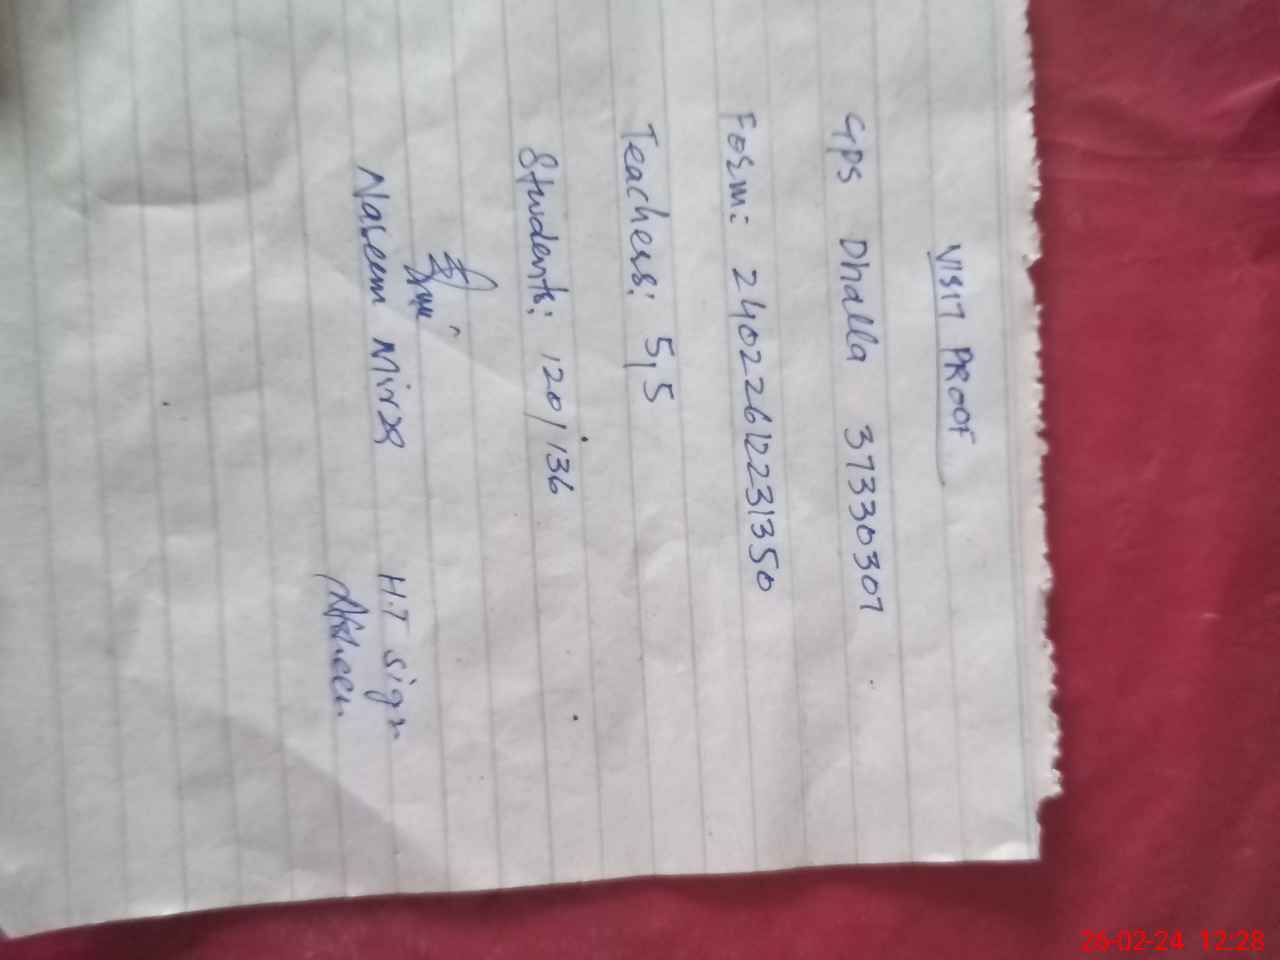 VISIT PROOF
GPS Dhalla 37330307
Form: 24022612231350
Teachers: 5,5
Students: 120/136
Naseem Mirza
H.T sign
26-02-24 12:28